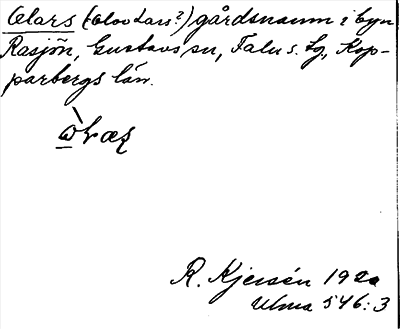 Olars (Olov Lars?) gårdsnamn i byn
Rasjön, Gustavs sn, Falu s. lg, Kop-
parbergs län.
R. Kjersén 1920
Ulma 546:3